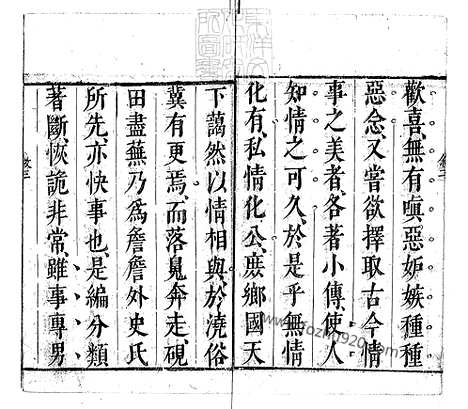 歡喜無有嗔惡妬嫉種種
惡念又嘗欲擇取古今情
事之美者各著小傳使人
知情之可久於是乎無情
化有私情化公庻鄉國天
下藹然以情相與於澆俗
冀有更焉而落魄奔走硯
田盡蕪乃爲詹詹外史氏
所先亦快事也是編分類
著斷恢詭非常雖事專男